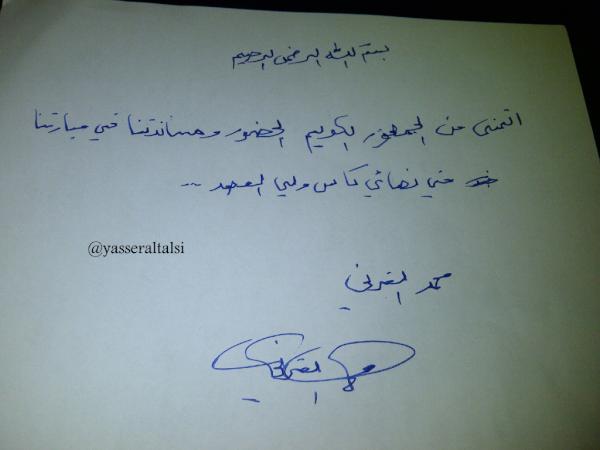 بسم الله الرحمن الرحيم
اتمنى من الجمهور الكريم الحضور ومساندتنا في مبارتنا
في نهائي كاس ولي العهد ..
@yasseraltalsi
محمد القرني